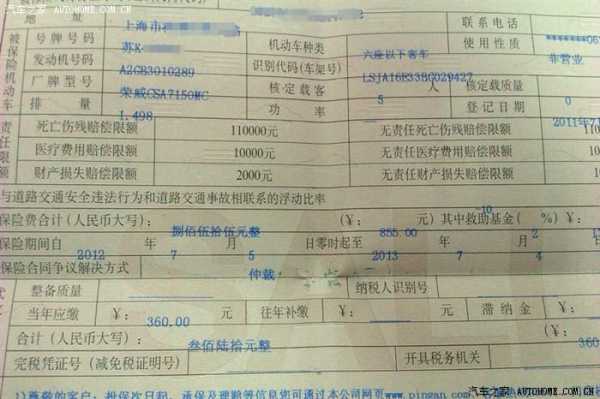 汽车之家 AUTOHOME.COM.CN
地 址 上海市 联系电话 *******06
被保险机动车
号牌号码 苏K· 机动车种类 六座以下客车 使用性质 非营业
发动机号码 A2GB3010289 识别代码(车架号) LSJA16E33BG029427
厂牌型号 荣威CSA7150MC 核定载客 5 人 核定载质量 0
排 量 1.498 功 率 登记日期 2011
责任限额
死亡伤残赔偿限额 110000元 无责任死亡伤残赔偿限额 110
医疗费用赔偿限额 10000元 无责任医疗费用赔偿限额 10
财产损失赔偿限额 2000元 无责任财产损失赔偿限额
与道路交通安全违法行为和道路交通事故相联系的浮动比率 -10
保险费合计(人民币大写): 捌佰伍拾伍元整 (¥: 855.00 元)其中救助基金( 2 %)¥:
保险期间自 2012 年 7 月 5 日零时起至 2013 年 7 月 4
保险合同争议解决方式 仲裁
整备质量 纳税人识别号
当年应缴 ¥: 360.00 元 往年补缴 ¥: 元 滞纳金 ¥:
合计(人民币大写): 叁佰陆拾元整 (¥: 360
完税凭证号(减免税证明号) 开具税务机关
1)尊敬的客户:投保次日起,承保及理赔等信息您可通过本公司网页www.pingan.com
汽车之家 AUTOHOME.COM.CN